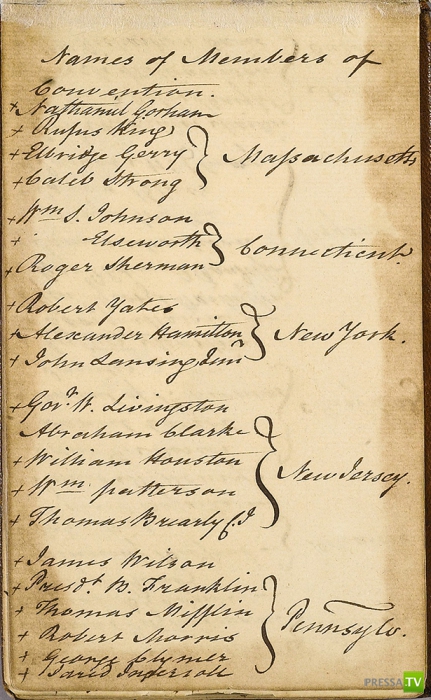 Names of Members of
Convention.
+ Nathaniel Gorham
+ Rufus King
+ Elbridge Gerry } Massachusetts
+ Caleb Strong
+ Wm S. Johnson
+ Elseworth } Connecticut.
+ Roger Sherman
+ Robert Yates
+ Alexander Hamilton } New York.
+ John Lansing Junr
+ Govr. W. Livingston
Abraham Clarke
+ William Houston
+ Wm patterson } New Jersey.
+ Thomas Brearly C.J
+ James Wilson
+ Presdt. B. Franklin
+ Thomas Mifflin } Pennsylv.
+ Robert Morris
+ George Clymer
+ Jared Ingersoll
PRESSA.TV